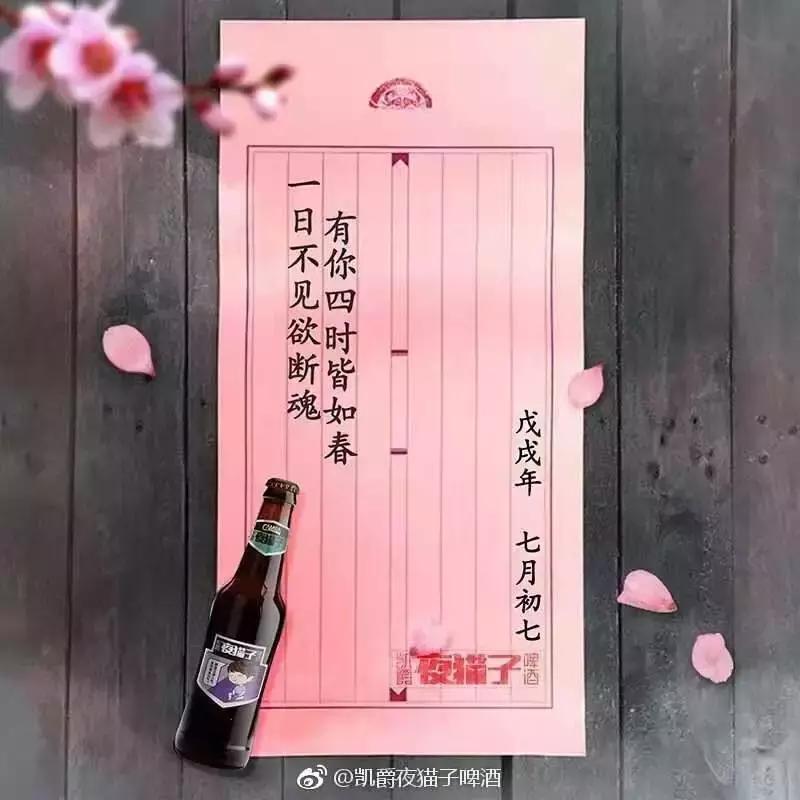 有你四时皆如春
一日不见欲断魂
戊戌年 七月初七
凯爵夜猫子啤酒
夜猫子
夜猫子
@凯爵夜猫子啤酒